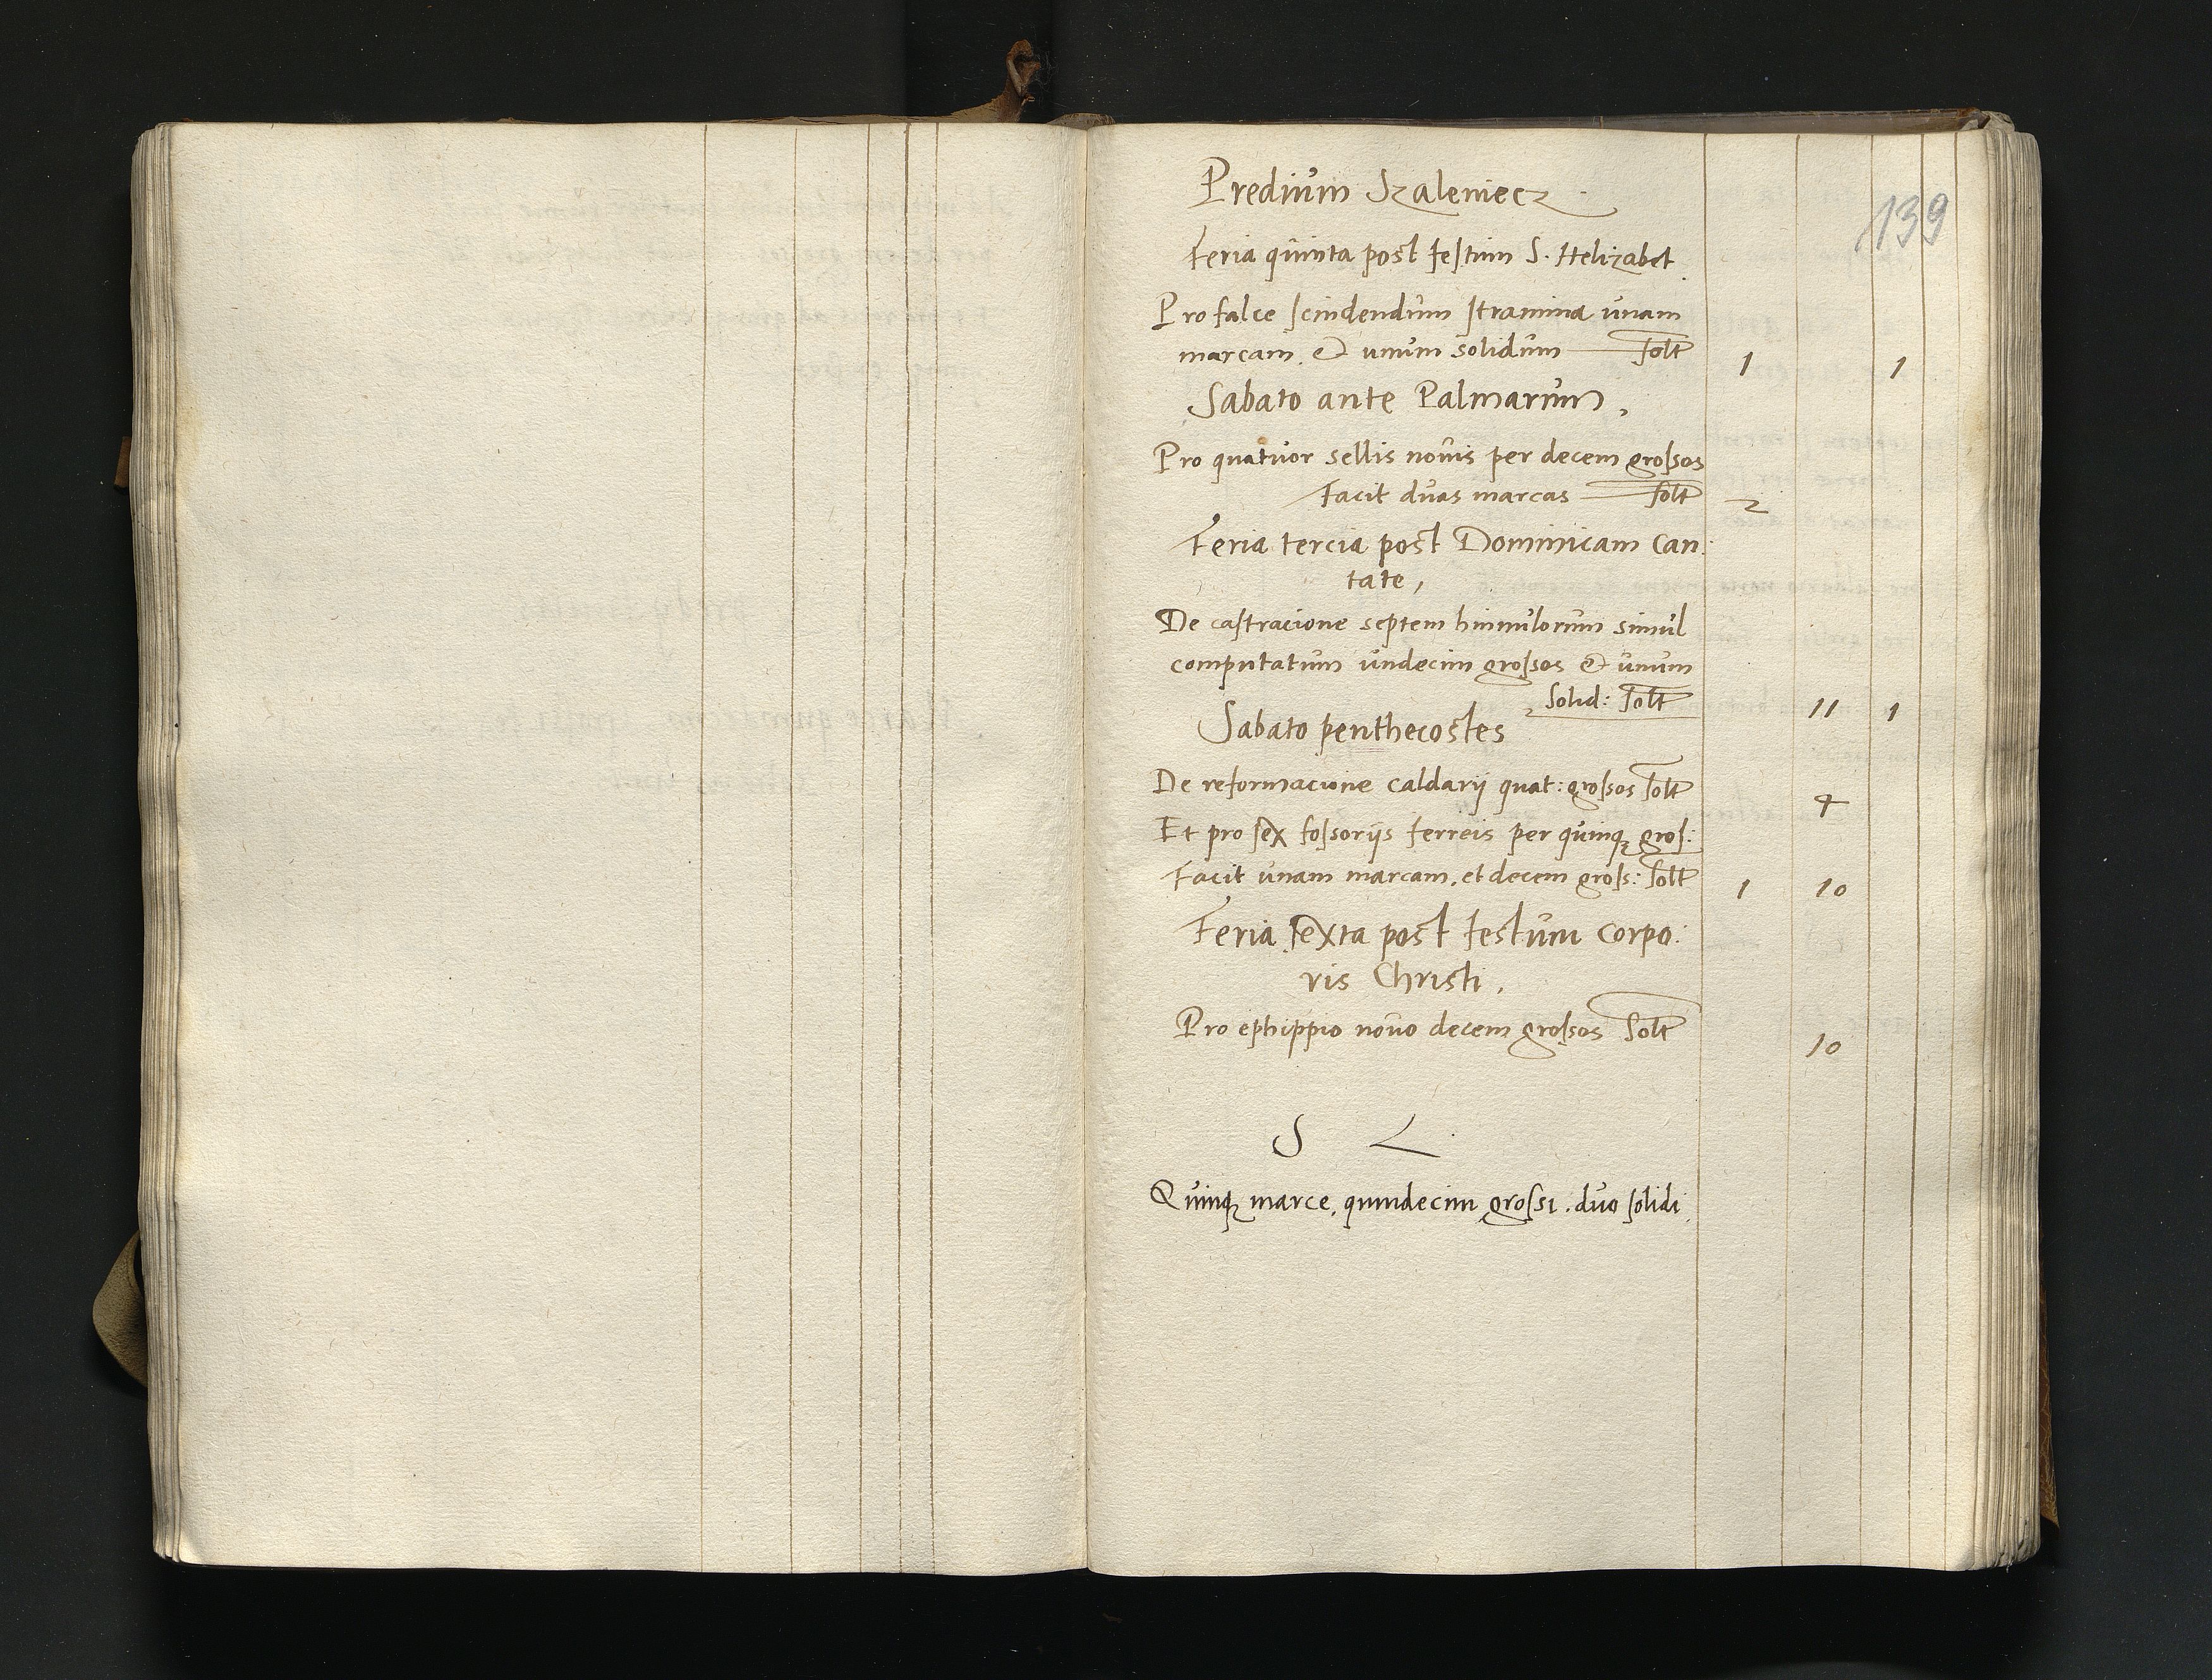 139
Predium Szaleniecz
Feria quinta post festum S. Helizabet
Pro falce scindendum stramina unam
marcam et unum solidum solt 1 1
Sabato ante Palmarum,
Pro quatuor sellis novis per decem grossos
Facit duas marcas solt 2
Feria tercia post Dominicam Can:
tate,
De castracione septem hinnulorum simul
computatum undecim grossos et unum
solid: solt 11 1
Sabato penthecostes
De reformacione caldarij quat: grossos solt 4
Et pro sex fossorijs ferreis per quinq gros:
Facit unam marcam, et decem gross: solt 1 10
Feria sexta post festum corpo:
ris Christi,
Pro ephippio novo decem grossos solt 10
S L
Quinq marce, quindecim grossi. duo solidi